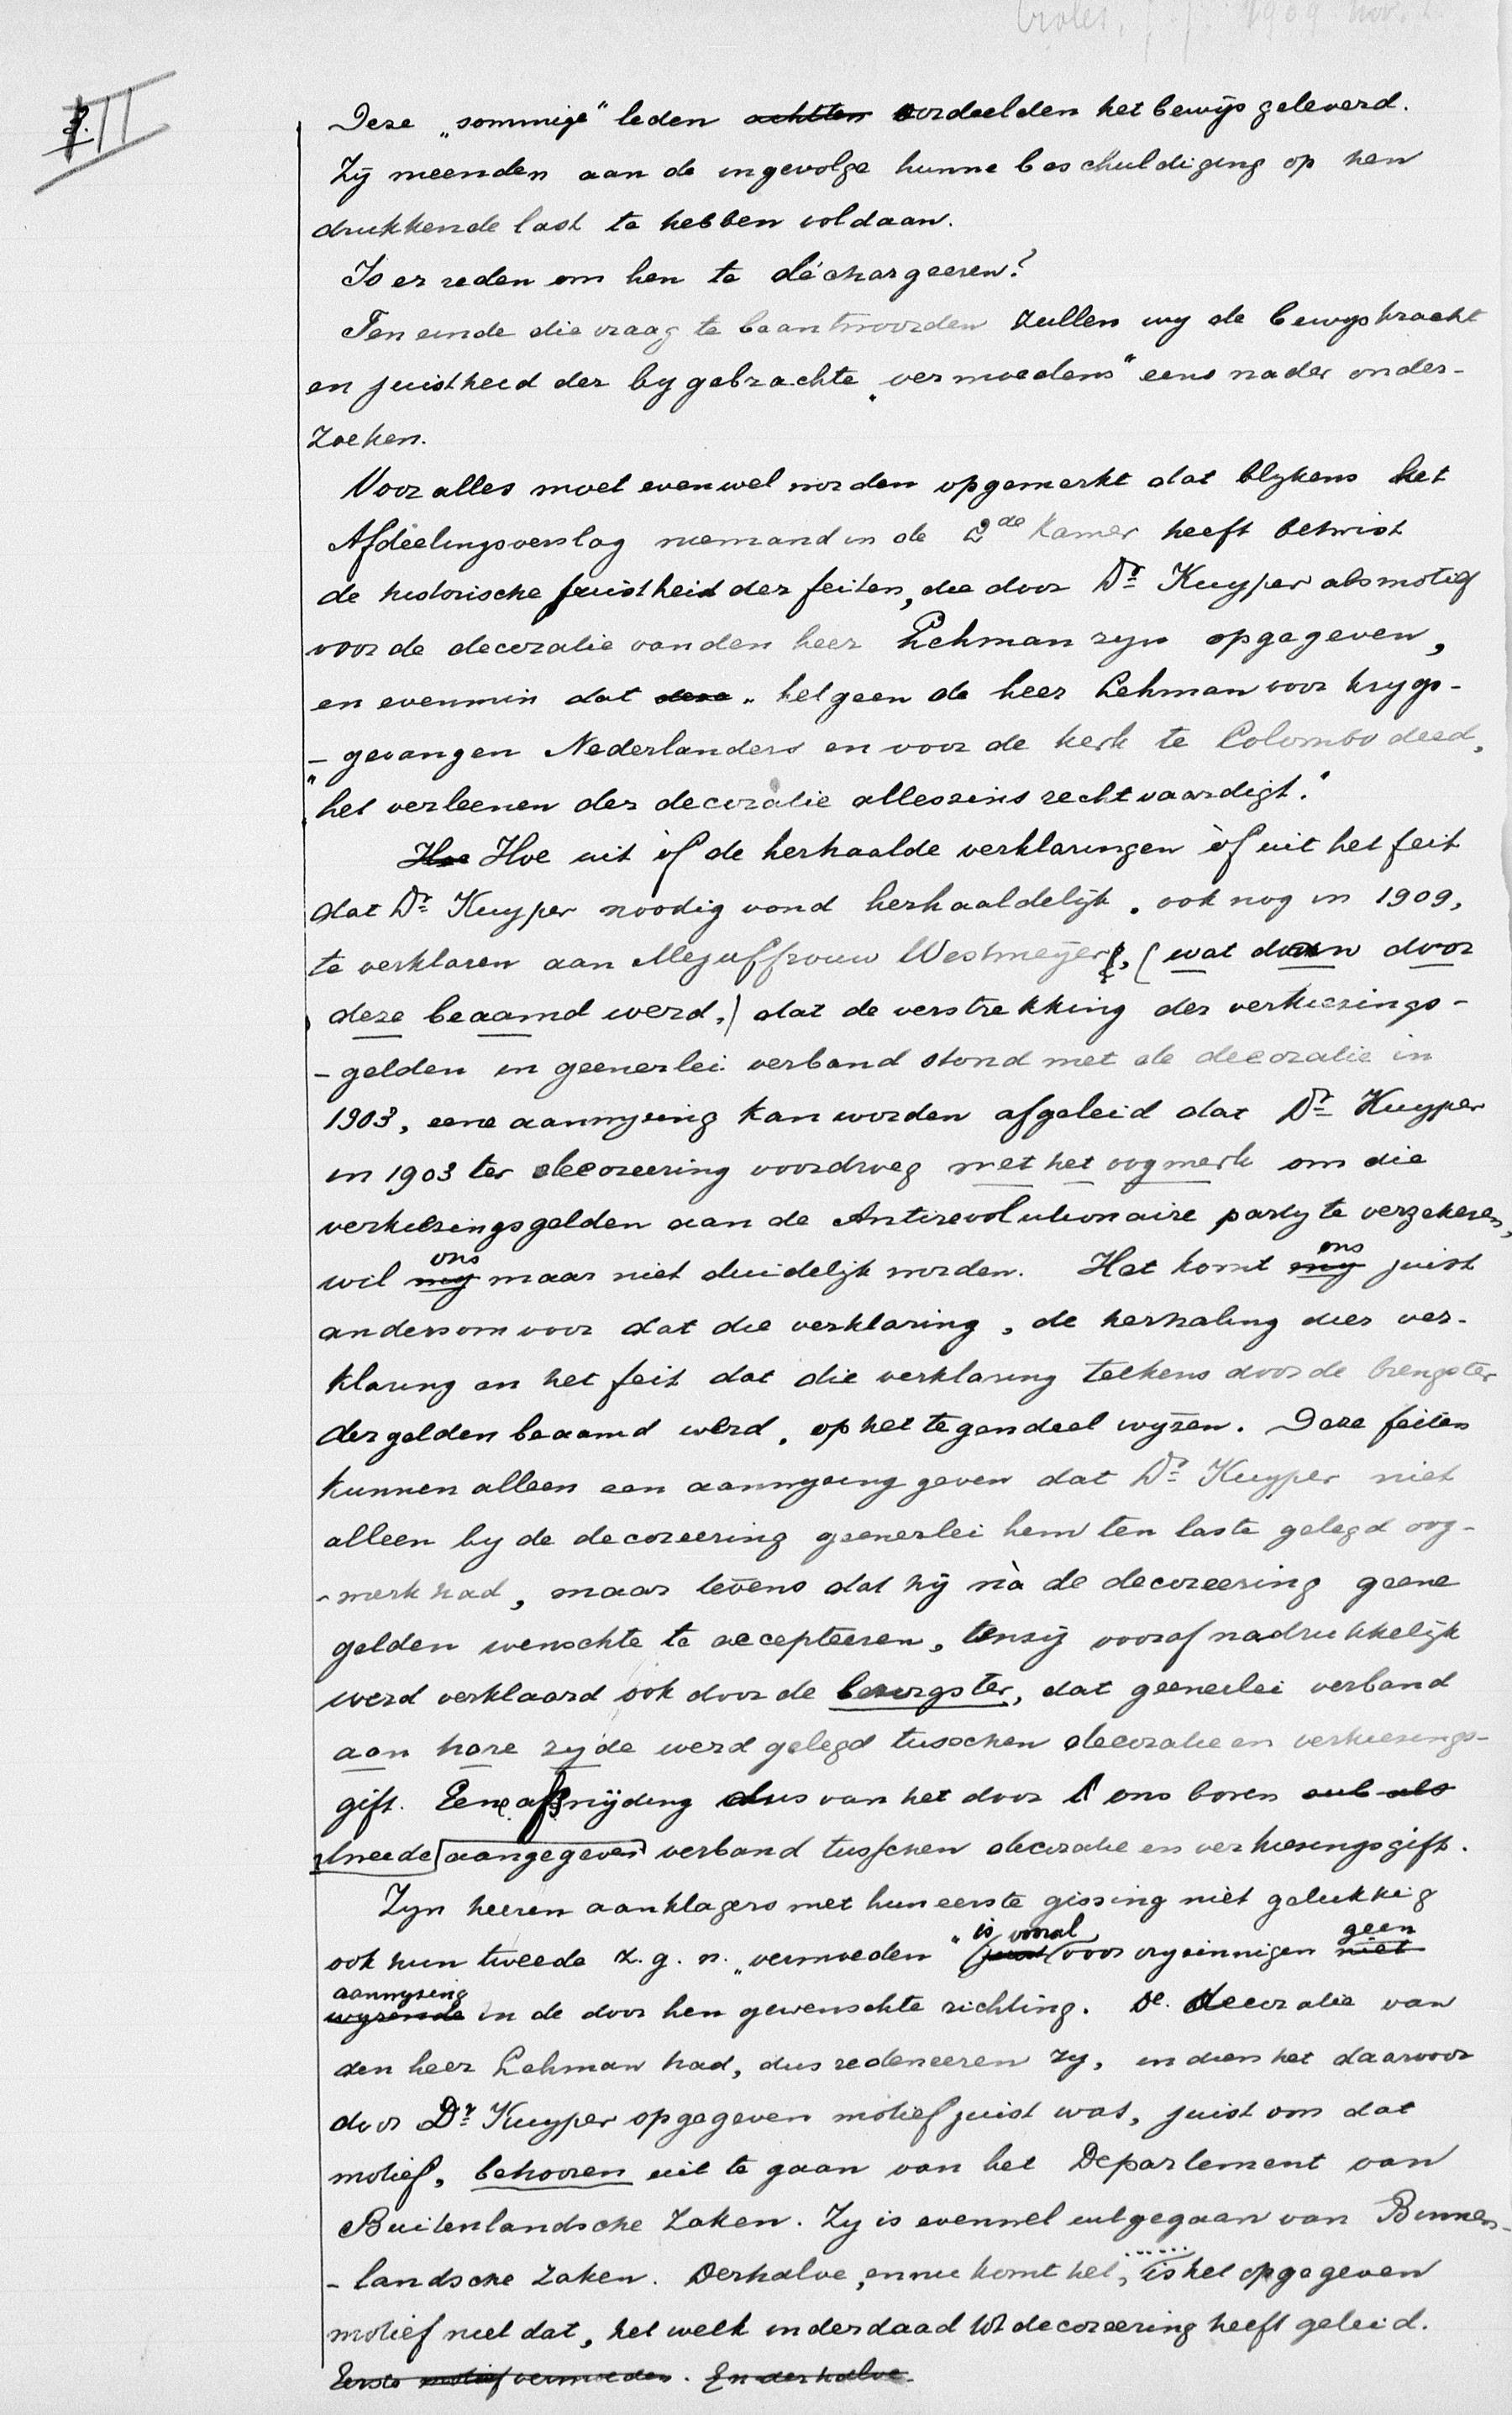 Croles, J. J. 1909 nov. 2.
7. II
Deze „sommige" leden achtten oordeelden het bewijs geleverd.
Zij meenden aan de ingevolge hunne beschuldiging op hen
drukkende last te hebben voldaan.
Is er reden om hen te déchargeeren?
Ten einde die vraag te beantwoorden zullen wy de bewyskracht
en juistheid der bygebrachte „vermoedens" eens nader onder-
zoeken.
Voor alles moet evenwel worden opgemerkt dat blykens het
Afdeelingsverslag niemand in de 2de Kamer heeft betwist
de historische juistheid der feiten, die door Dr Kuyper als motief
voor de decoratie van den heer Lehman zyn opgegeven,
en evenmin dat deze „hetgeen de heer Lehman voor krygs-
- gevangen Nederlanders en voor de kerk te Colombo deed,
"het verleenen der decoratie alleszins rechtvaardigt."
Hoe Hoe uit òf de herhaalde verklaringen òf uit het feit
dat Dr Kuyper noodig vond herhaaldelijk, ook nog in 1909,
te verklaren aan Mejuffrouw Westmeijer, (wat dan door
deze beaamd werd,) dat de verstrekking der verkiezings-
- gelden in geenerlei verband stond met de decoratie in
1903, eene aanwyzing kan worden afgeleid dat Dr Kuyper
in 1903 ter decoreering voordroeg met het oogmerk om die
verkiezingsgelden aan de Antirevolutionaire party te verzekeren,
wil my ons maar niet duidelijk worden. Het komt my ons juist
andersom voor dat die verklaring, de herhaling dier ver-
klaring en het feit dat die verklaring telkens door de brengster
der gelden beaamd werd, op het tegendeel wyzen. Deze feiten
kunnen alleen een aanwyzing geven dat Dr Kuyper niet
alleen by de decoreering geenerlei hem ten laste gelegd oog-
- merk had, maar tevens dat hij nà de decoreering geene
gelden wenschte te accepteeren, tenzij vooraf nadrukkelijk
werd verklaard ook door de bezorgster, dat geenerlei verband
aan hare zijde werd gelegd tusschen decoratie en verkiezings-
gift. Eene afsnijding dus van het door ons boven sub als
tweede aangegeven verband tusschen decoratie en verkiezingsgift.
Zyn heeren aanklagers met hun eerste gissing niet gelukkig
ook hun tweede z.g.n. „vermoeden" is vooral juist voor vryzinnigen geen niet
aanwyzing wyzende in de door hen gewenschte richting. De decoratie van
den heer Lehman had, dus redeneeren zy, indien het daarvoor
door Dr Kuyper opgegeven motief juist was, juist om dat
motief, behooren uit te gaan van het Departement van
Buitenlandsche Zaken. Zy is evenwel uitgegaan van Binnen-
- landsche Zaken. Derhalve, en nu komt het, ..... is het opgegeven
motief niet dat, het welk inderdaad tot decoreering heeft geleid.
Eerste motief vermoeden. En derhalve.